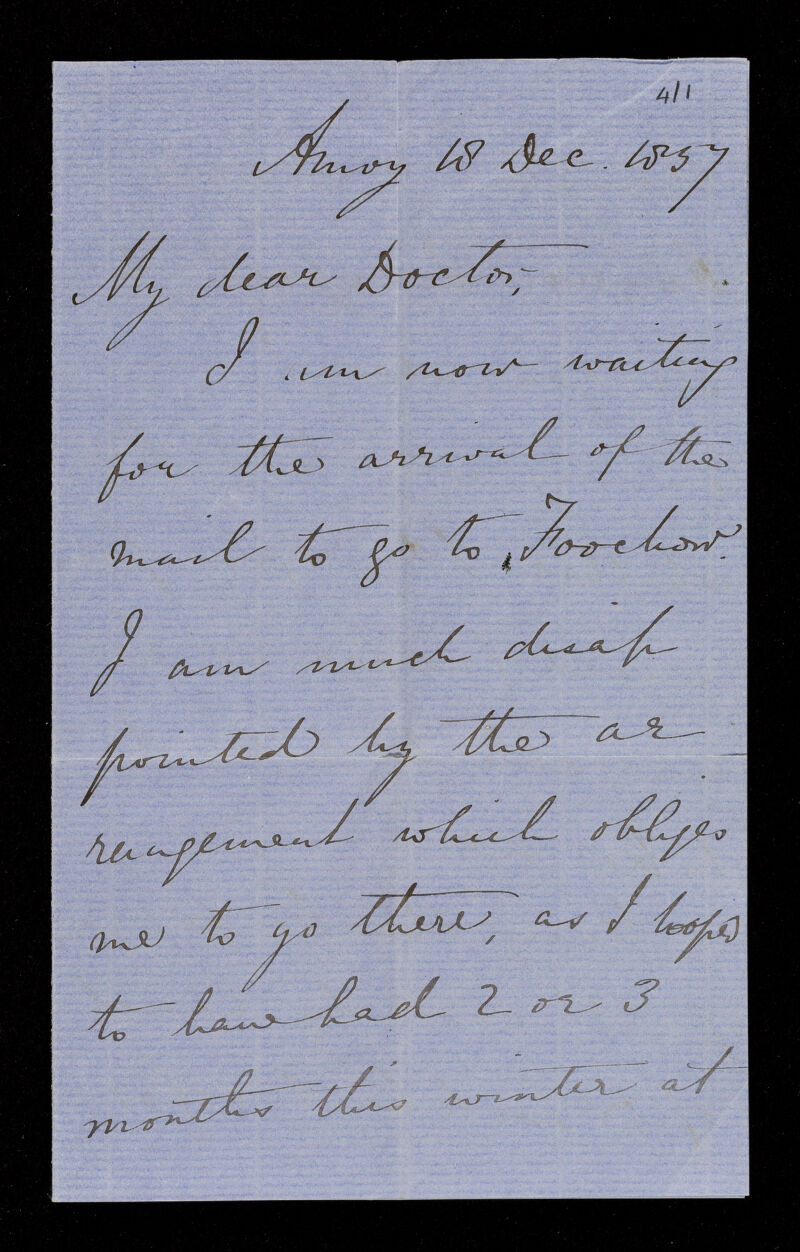 4/1
Amoy 18 Dec. 1857
My dear Doctor,
I am now waiting
for the arrival of the
mail to go to Foochow.
I am much disap
pointed by the ar
rangement which obliges
me to go there, as I hoped
to have had 2 or 3
months this winter at